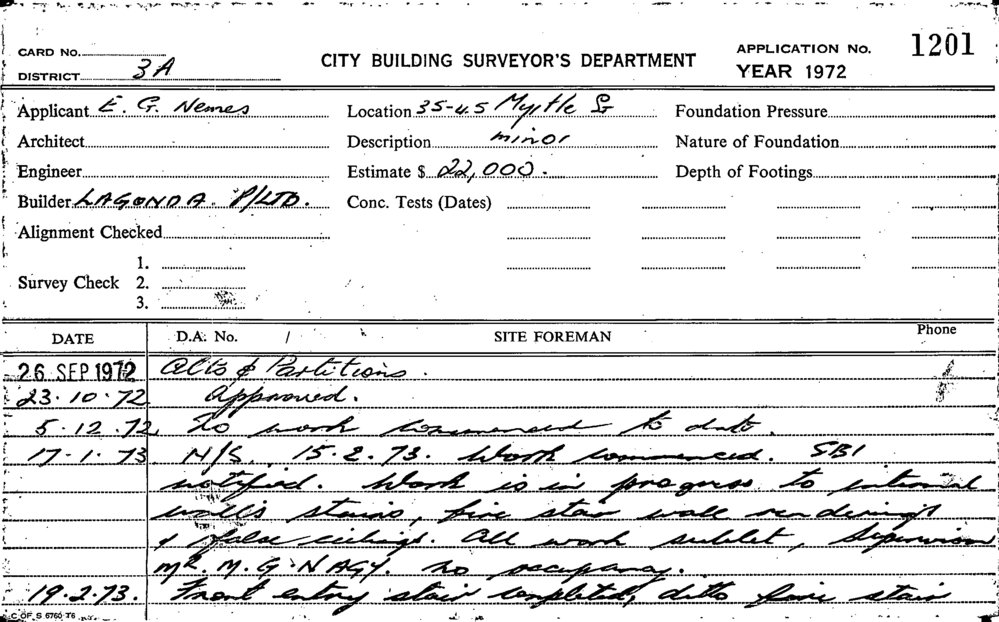 CARD No.
DISTRICT 3A
CITY BUILDING SURVEYOR'S DEPARTMENT
APPLICATION No. 1201
YEAR 1972
Applicant E. G. Nemes
Location 35-45 Myrtle St
Foundation Pressure
Architect
Description minor
Nature of Foundation
Engineer
Estimate $ 22,000.
Depth of Footings
Builder LAGONDA P/LTD.
Conc. Tests (Dates)
Alignment Checked
Survey Check 1.
2.
3.
DATE D.A. No. / SITE FOREMAN Phone
26 SEP 1972 Alts & Partitions.
23.10.72 Approved.
5.12.72 No work commenced to date.
17.1.73 N/S. 15.2.73. Work commenced. SBI
notified. Work is in progress to internal
walls stairs, fire stair wall renderings
& false ceilings. All work sublet, Supervision
Mr. M. G. NAGY. No occupancy.
19.2.73. Front entry stair completed, ditto fire stair
C OF S 6760 T6